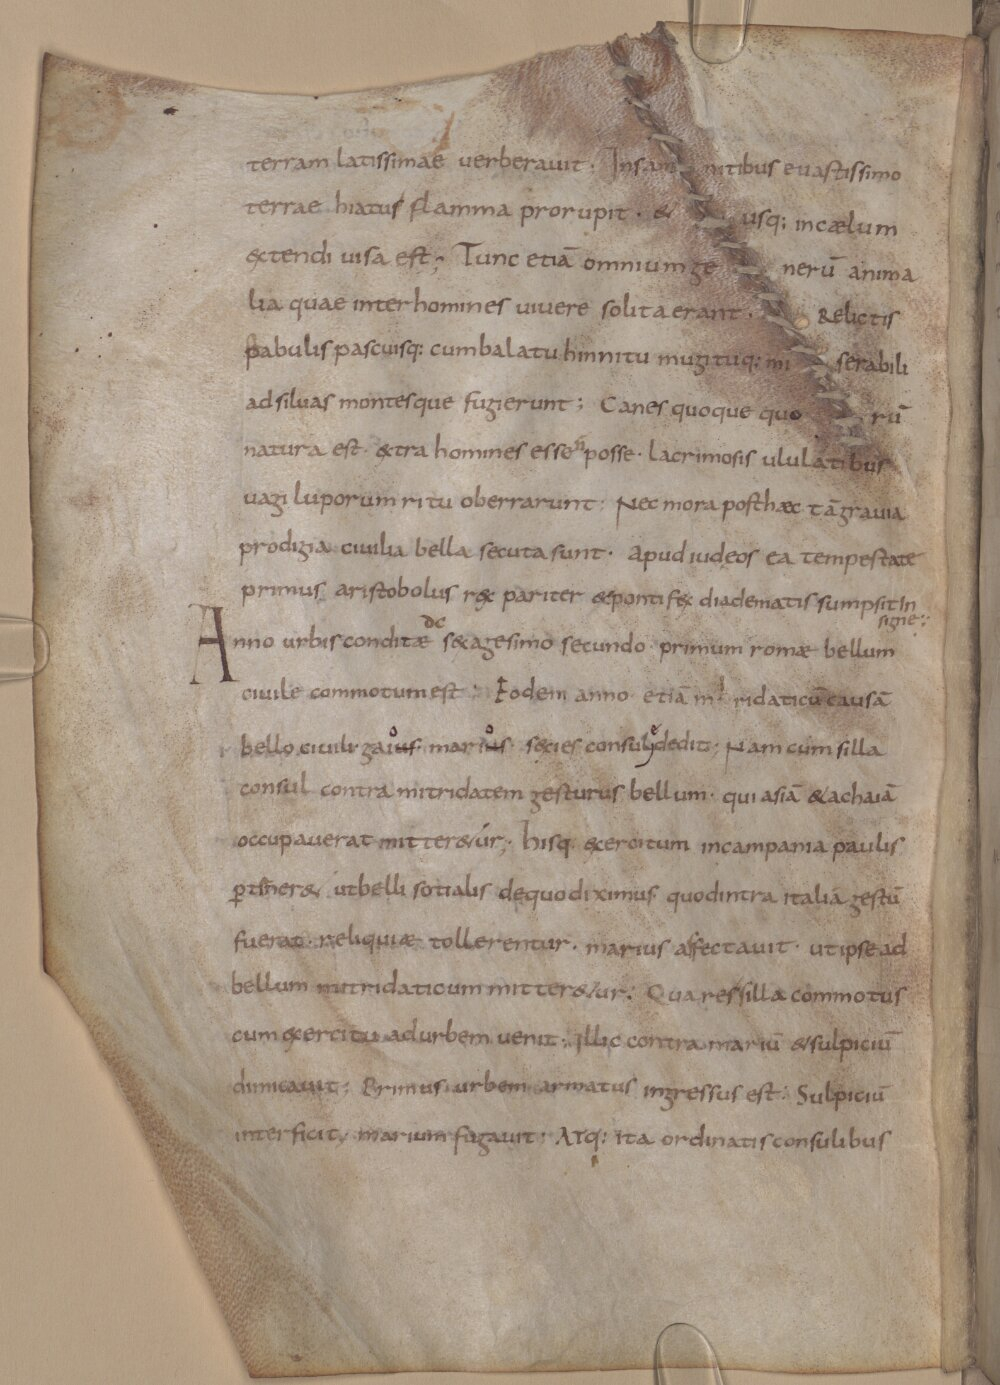 terram latissimae verberavit · Insam nitibus evastissimo
terrae hiatus flamma prorupit · & usq; incælum
&tendi visa est; Tunc etiā omnium ge nerū anima
lia quae inter homines vivere solita erant · Relictis
pabulis pascuisq; cumbalatu hinnitu mugituq; mi serabili
adsilvas montesque fugierunt; Canes quoque quo rū
natura est · &tra homines esse ñ posse · lacrimosis ululatibus
vagi luporum ritu oberrarunt; Nec mora posthæc tāgravia
prodigia civilia bella secuta sunt · apud iudeos ea tempestate
primus aristobolus rex pariter &pontifex diadematis sumpsit In
signe;
Anno urbis conditæ dc sexagesimo secundo primum romæ bellum
civile commotum est; Eodem anno etiā mit ridaticū causā
bello civili gaius marius secies consul dedit; Nam cum silla
consul contra mitridatem gesturus bellum · qui asiā & achaiā
occupaverat mitter&ur; hisq exercitum incampania paulis
ptiner& utbelli sotialis dequo diximus quodintra italiā gestū
fuerat · reliquiæ tollerentur · marius affectavit · ut ipse ad
bellum mitridaticum mitter&ur; Qua re silla commotus
cum exercitu adurbem venit; illic contra mariū & sulpiciū
dimicavit; Primus urbem armatus ingressus est; Sulpiciū
interficit, marium fugavit; Atq; ita ordinatis consulibus